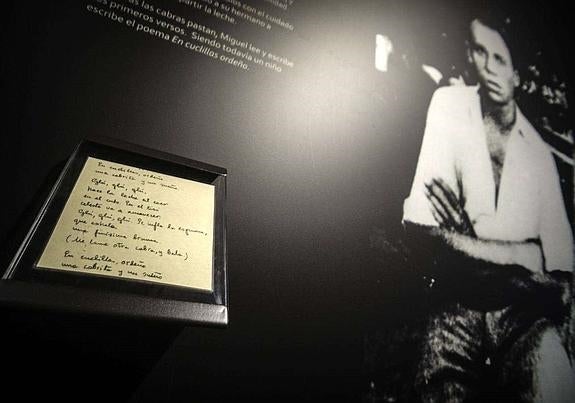 los con el cuidado
a su hermano a
partir la leche.
as las cabras pastan, Miguel lee y escribe
os primeros versos. Siendo todavía un niño
escribe el poema En cuclillas ordeño.
En cuclillas, ordeño
una cabrita y un sueño
Glú, glú, glú,
hace la leche al caer
en el cubo. En el tisú
celeste va a amanecer.
Glú, glú, glú. Se infla la espuma,
que exhala
una finísima bruma.
(Me lame otra cabra, y bala.)
En cuclillas, ordeño
una cabrita y un sueño